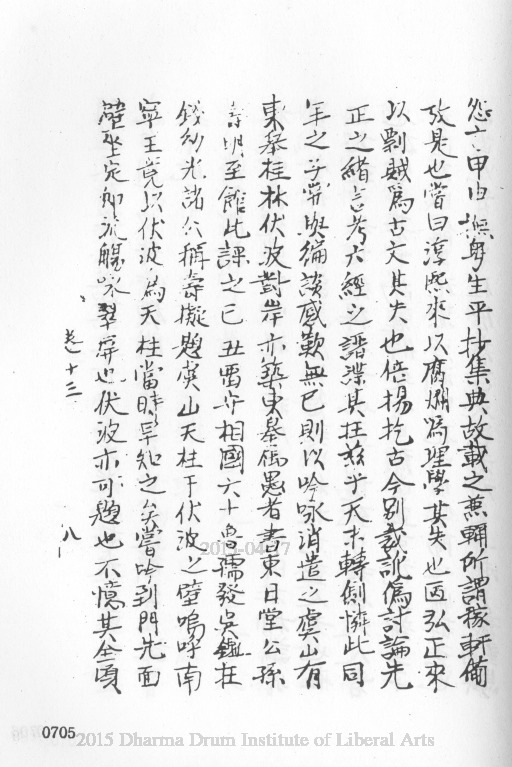 怨亡甲由㒇粵生平抄集典故載之兼輞所謂稼軒備
攷是也嘗曰淳熙來以腐爛為理學其失也固弘正來
以剽賊為古文其失也倍揚扢古今別裁訛偽討論先
正之緒言考六經之譜諜其在茲乎天末轉側憐此同
年之子嘗與編談感歎無已則以吟咏消遣之虞山有
東皋桂林伏波對岸亦築東皋傴愚者書東日堂公孫
壽明至館此課之己丑畱守相國六十曾孺發吳鑑在
錢幼光諸公稱壽擬題虞山天柱于伏波之壁嗚呼南
寧王竟以伏波為天柱當時早知之矣嘗吟到門先面
壁坐定卽流觴咏翠屏也伏波亦可題也不憶其全頃
卷十三
八
0705
2015 Dharma Drum Institute of Liberal Arts